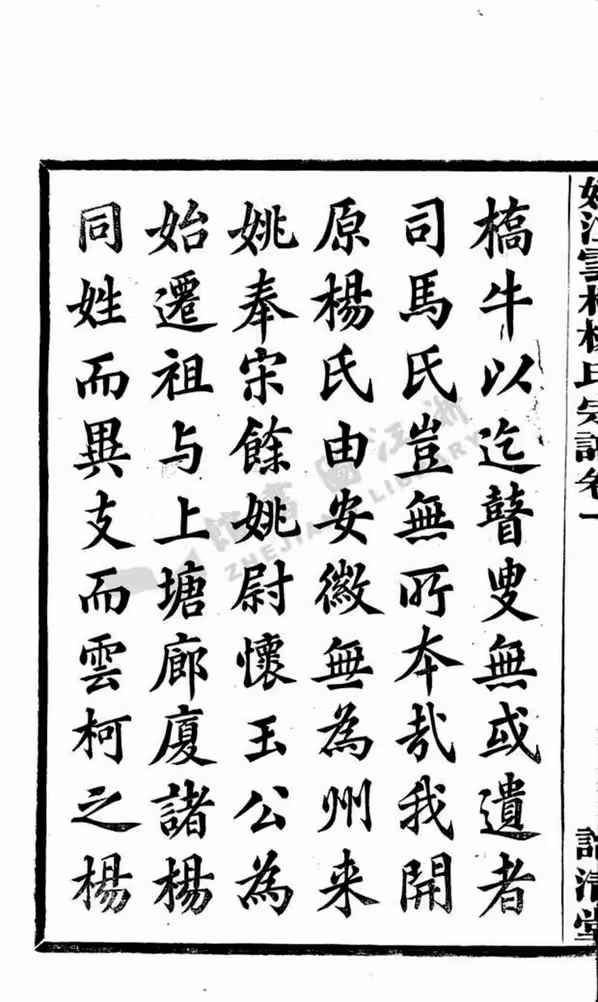 姚江雲柯楊氏宗譜卷一
清堂
橋牛以迄瞽叟無或遺者
司馬氏豈無所本哉我開
原楊氏由安徽無為州来
姚奉宋餘姚尉懷玉公為
始遷祖与上塘廊廈諸楊
同姓而異支而雲柯之楊
浙江圖書館
ZHEJIANG LIBRARY